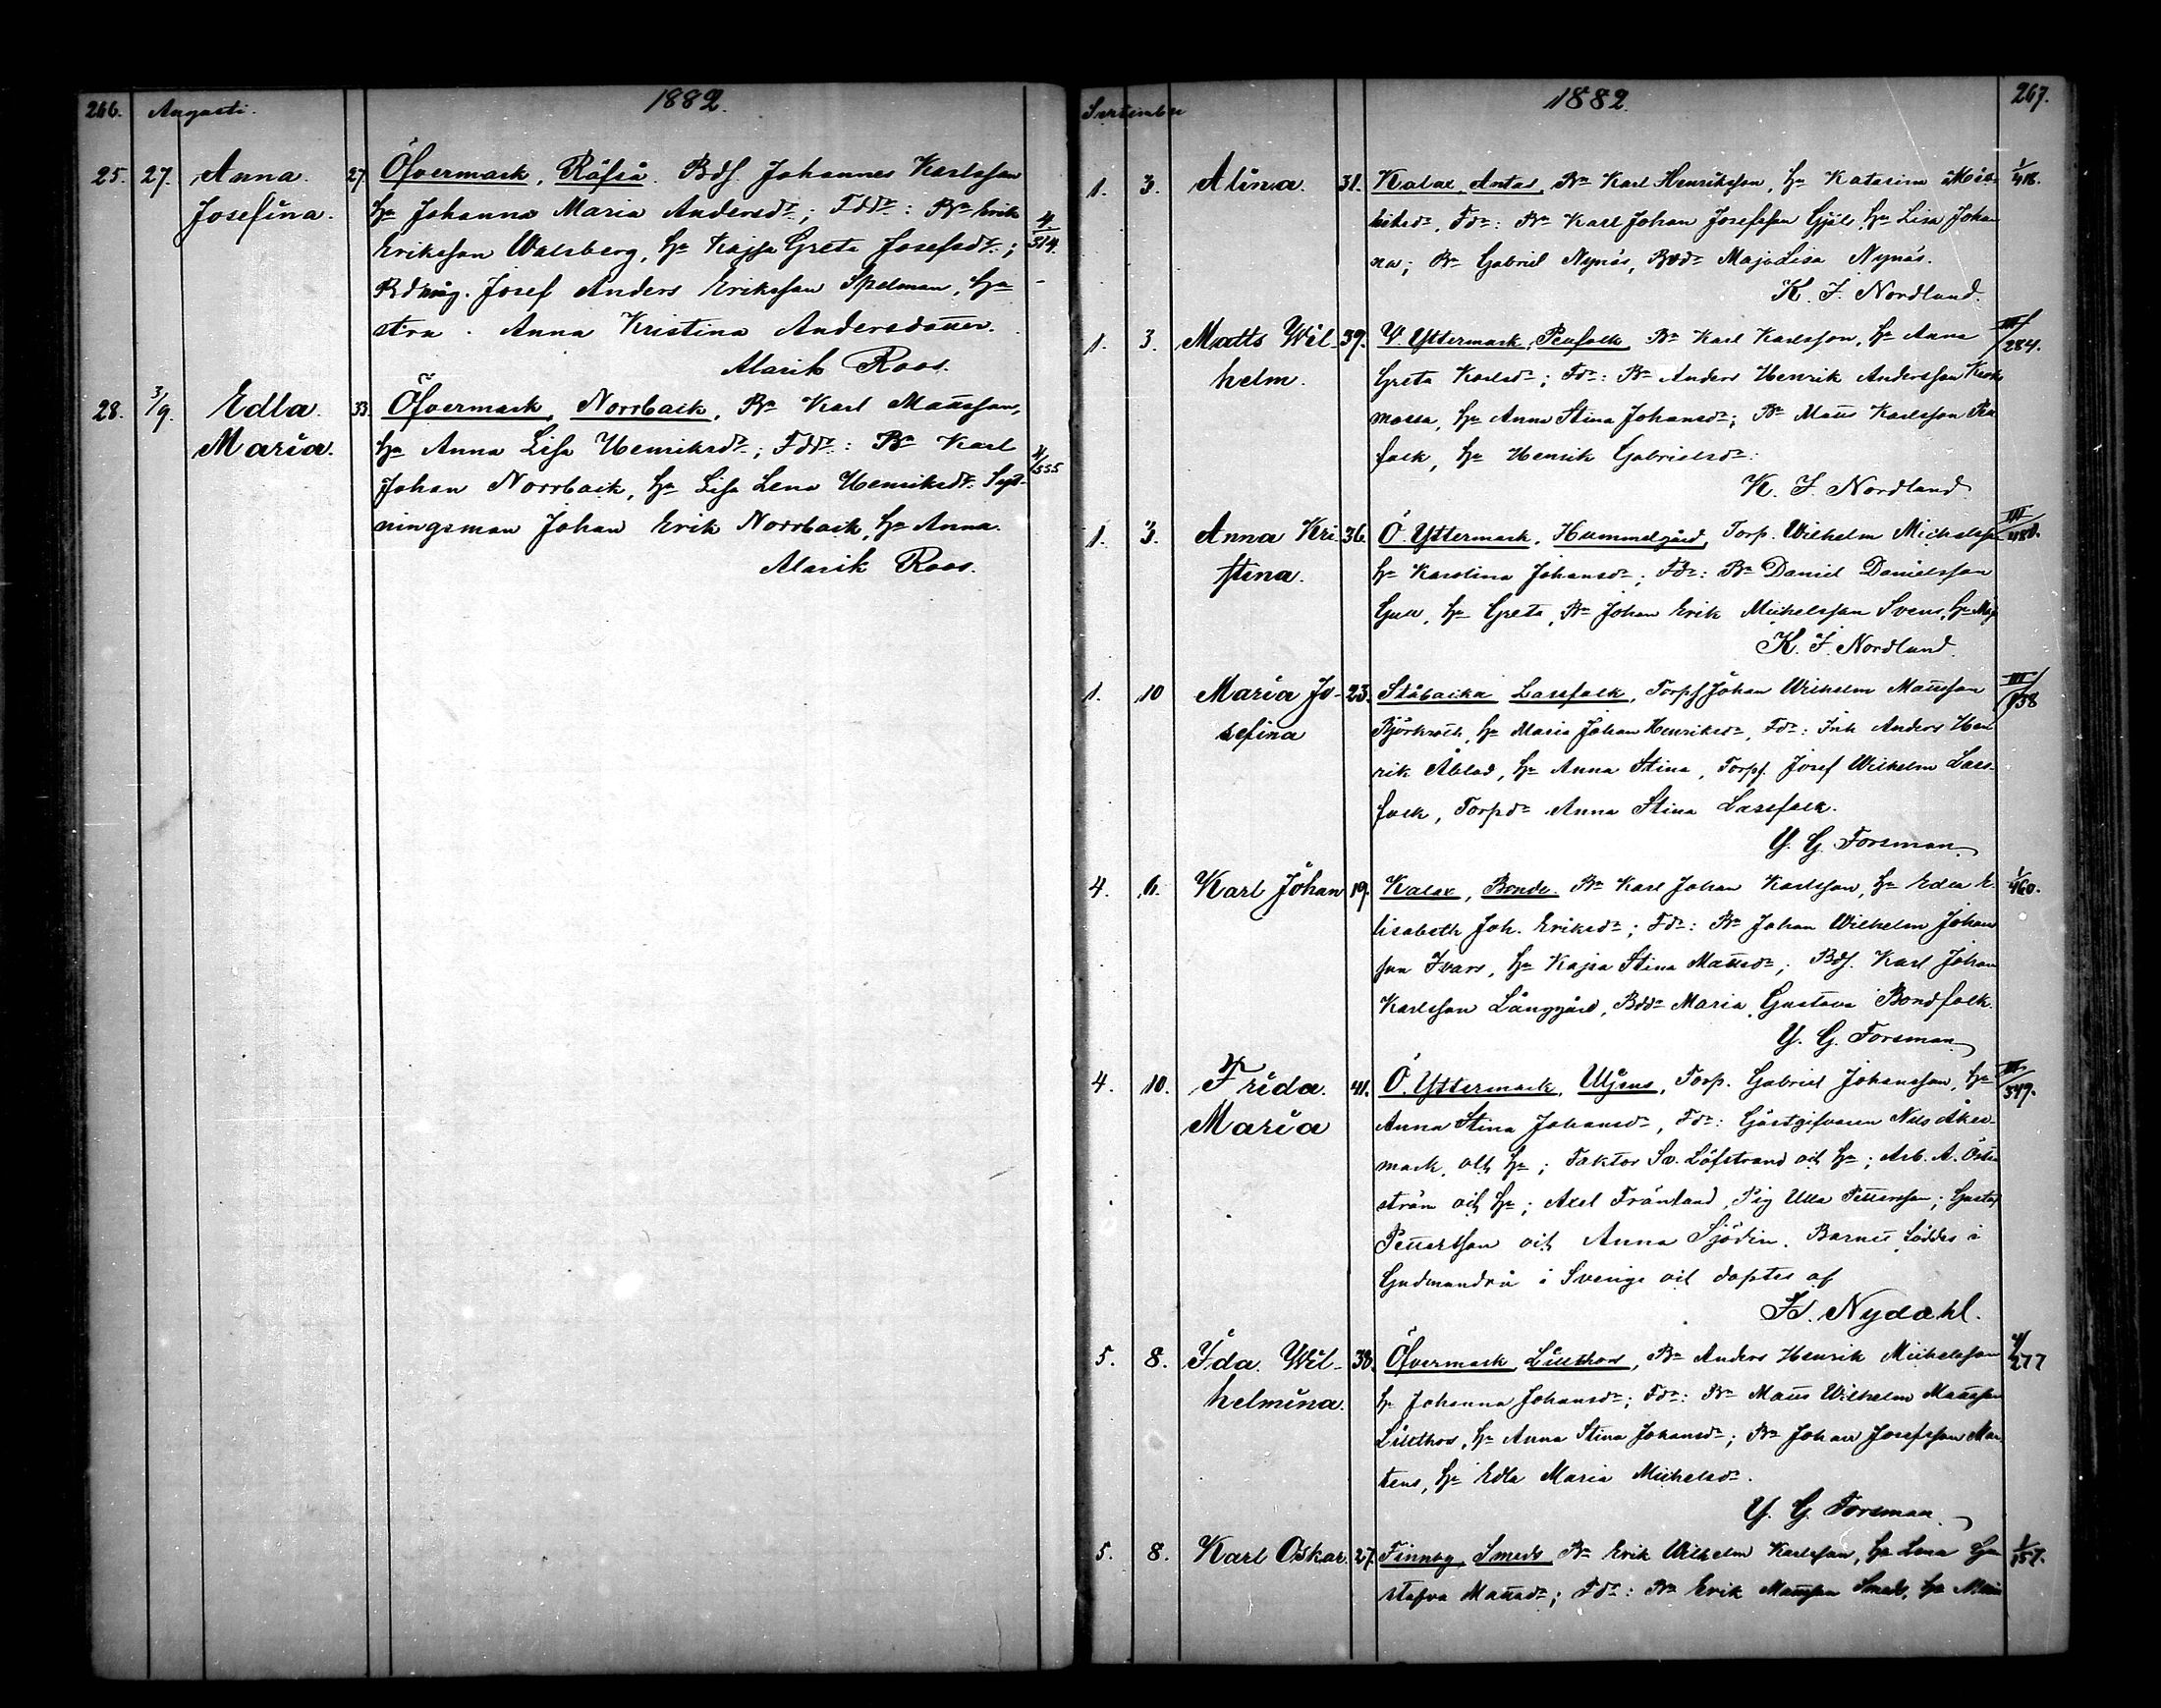 266. Augusti. 1882.
25. 27. Anna 27 Öfvermark, Räfsä. Bdſ. Johannes Karlsson
Josefina. Hu Johanna Maria Andersdr; Fddr: Bn Erik
Eriksson Walsberg, Hu Kajsa Greta Josefsdr; 4/514.
Josef Anders Eriksson Spelman, Hu
Anna Kristina Andersdotter.
Alarik Roos.
28. 3/9. Edla 33. Öfvermark, Norrback, Bn Karl Mattsson,
Maria. Hu Anna Lisa Henriksdr; Fddr: Bn Karl
Johan Norrback, Hu Lisa Lena Henriksdr. 4/555
ningsman Johan Erik Norrback, Hu Anna.
Alarik Roos.
September 1882. 267.
1. 3. Alina. 31. Kalax, Antas, Bn Karl Henriksson, Hu Katarina 1/418.
Fdr: Bn Karl Johan Josefsson Hu Lisa Johan
na; Bn Gabriel Nynäs, Maja Lisa Nynäs.
K. J. Nordlund.
1. 3. Matts Wil- 39. Y. Yttermark, Penfolk Bn Karl Karlsson, Hu Anna III/284.
helm. Greta Karlsdr; Fdr: Bn Anders Henrik Andersson
mossa, Hu Anna Stina Johansdr; Bn Matts Karlsson Pen
folk, Hu Henrik Gabrielsdr.
K. J. Nordlund
1. 3. Anna Kri 36. Ö. Yttermark, Hummelgård, Torp. Wilhelm Michelsson
stina. Hu Karolina Johansdr; Fdr: Bn Daniel Danielsson
Hu Greta, Bn Johan Erik Michelsson Svens, Hu Maj
K. J. Nordlund.
1. 10 Maria Jo- 23. Ståbacka Lassfolk, Torpſ Johan Wilhelm Mattsson III/138
sefina Hu Maria Johan Henriksdr, Fdr: Inh Anders Hen
rik Åblad, Hu Anna Stina, Torpſ. Josef Wilhelm Lass-
folk, Torpdr Anna Stina Lassfolk.
Y. G. Forsman
4. 6. Karl Johan 19. Kalax, Bonde. Bn Karl Johan Karlsson, Hu Edla E- 1/460.
lisabeth Joh. Eriksdr; Fdr: Bn Johan Wilhelm Johans
son Ivars, Hu Kajsa Stina Mattsdr; Bdſ. Karl Johan
Karlsson Långgård, Bddr Maria Gustava Bondfolk.
Y. G. Forsman
4. 10. Frida 41. Ö. Yttermark, Utjens, Torp. Gabriel Johansson, Hu III/347.
Maria Anna Stina Johansdr, Fdr: Gästgifvaren Nils Åker-
mark, och Hu; Faktor Sv. Löfstrand och Hu; Arb. A. Öster
ström och Hu; Axel Frånlund, Pig Ulla Pettersson; Gustaf
Pettersson och Anna Sjödin. Barnet föddes i
Gudmundrå i Sverige och döptes af
Nydahl.
5. 8. Ida Wil- 38. Öfvermark, Lillthors, Bn Anders Henrik Michelsson 4/277
helmina. Hu Johanna Johansdr; Fdr: Bn Matts Wilhelm Mattsson
Lillthors, Hu Anna Stina Johansdr; Bn Johan Josefsson Mår
tens, Hu Edla Maria Michelsdr.
Y. G. Forsman
5. 8. Karl Oskar. 27. Finnby, Smeds Bn Erik Wilhelm Karlsson, Hu Lena Gu 1/157.
stafva Mattsdr; Fdr: Bn Erik Mattsson Smeds, Hu